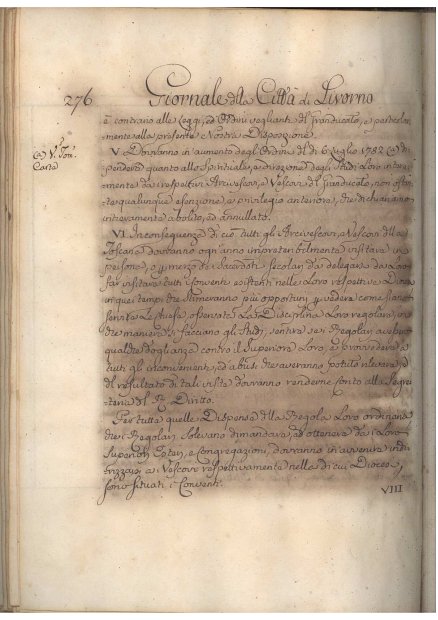 276 Giornale della Città di Livorno
è contrario alle Leggi, ed Ordini veglianti del Granducato, e particolar
mente alla presente Nostra Disposizione.
V. Dovranno in aumento degli Ordini del dì 6 Luglio 1782
pendere quanto allo Spirituale, e direzione degli Studi loro intera
mente da i respettivi Arcivescovi, e Vescovi del Granducato, non ostan
te qualunque esenzione, e privilegio anteriore, che dichiariamo
intieramente abolito, ed annullato.
VI. In conseguenza di ciò tutti gli Arcivescovi, e Vescovi della
Toscana dovranno ogn'anno impreteribilmente visitare in
persona, o per mezzo de i Sacerdoti secolari da delegarsi da Loro
far visitare tutti i Conventi esistenti nelle Loro respettive Diocesi
in quei tempi che stimeranno più opportuni per vedere come siano
servite Le Chiese, osservata La Disciplina Loro regolare, in
che maniera si facciano gli Studi, sentire se i Regolari avessero
qualche doglianza contro il Superiore Loro, e provvedere a
tutti gli inconvenienti, ed abusi che averanno potuto rilevare, e
del resultato di tali visite dovranno renderne conto alla Segre
teria del R. Diritto.
Per tutte quelle Dispense della Regola Loro ordinaria
che i Regolari solevano dimandare, ed ottenere da i Loro
Superiori Esteri, e Congregazioni, dovranno in avvenire indi
rizzarsi a i Vescovi respettivamente nella di cui Diocesi
sono situati i Conventi.
VIII